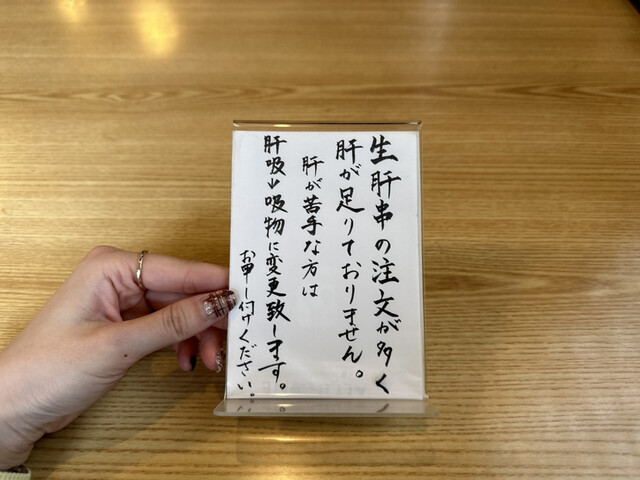 生肝串の注文が多く
肝が足りておりません。
肝が苦手な方は
肝吸→吸物に変更致します。
お申し付けください。